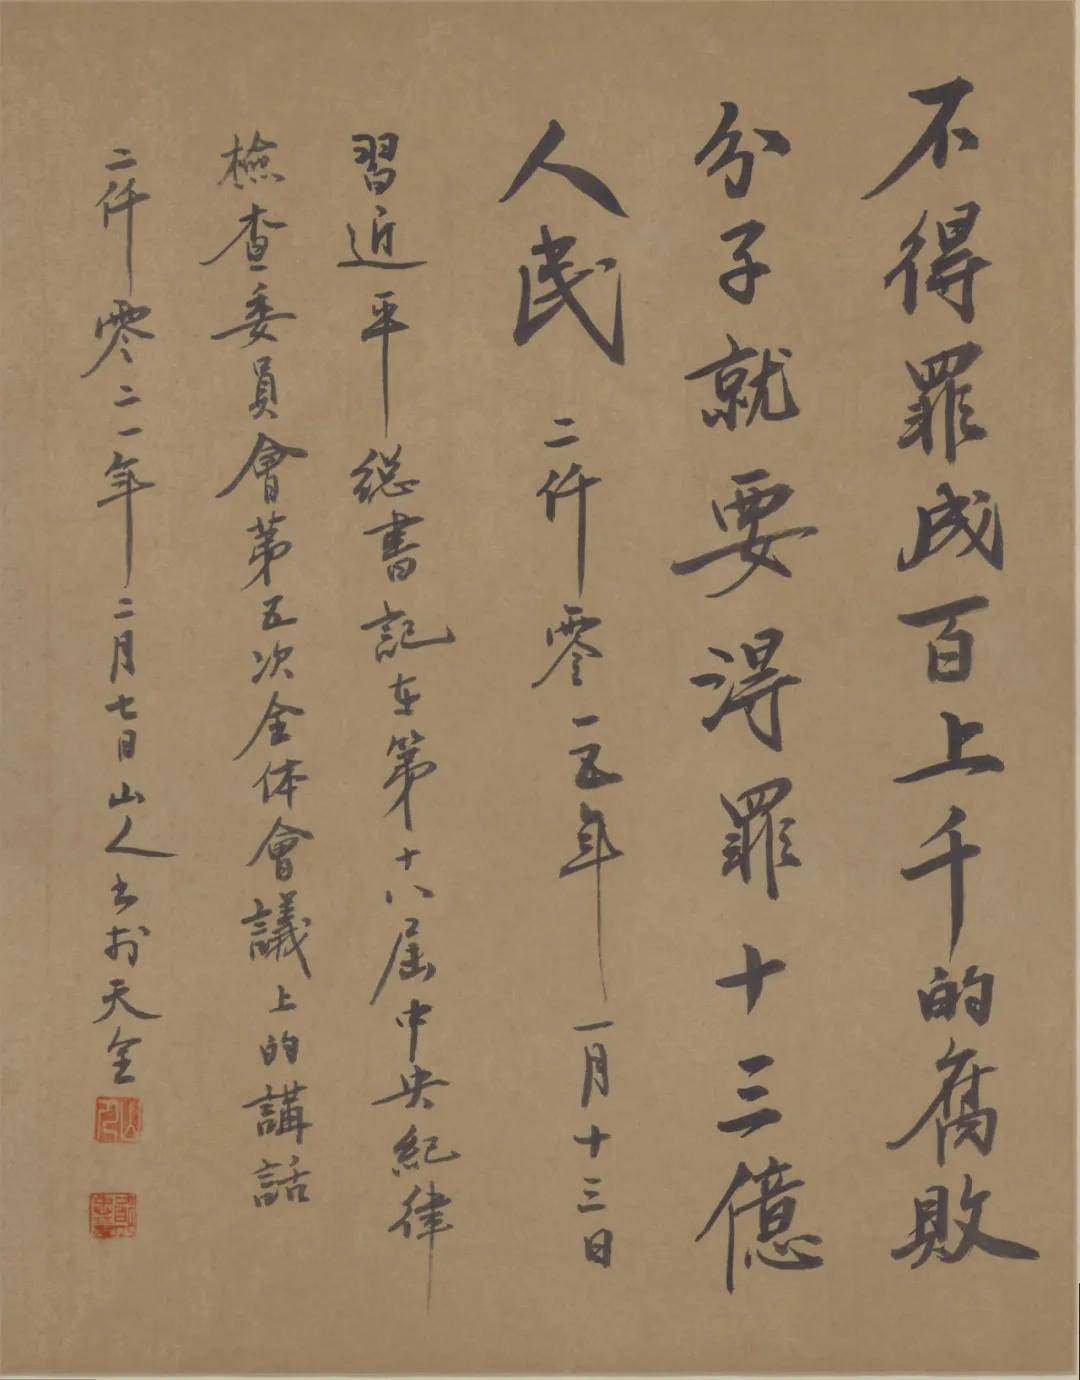 不得罪成百上千的腐敗
分子就要得罪十三億
人民 二仟零一五年一月十三日
習近平總書記在第十八屆中央紀律
檢查委員會第五次全体會議上的講話
二仟零二一年二月七日山人书於天全